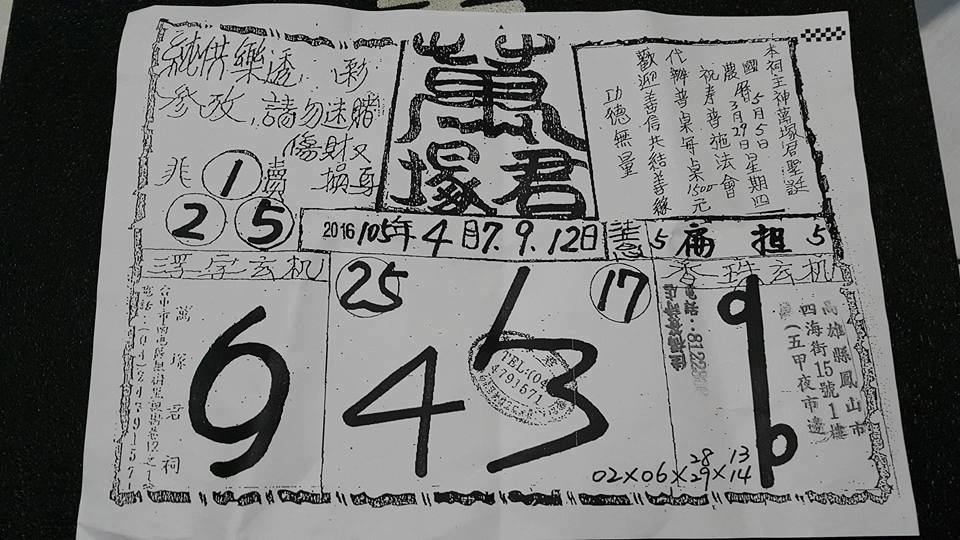 純供樂透 彩
參改,請勿迷賭
傷財又
損身
非 1 賣
2 5
萬
塚君
本祠主神萬塚君聖誕
國 5月5日星期四
農曆3月29日
祝寿普施法會
代辦普桌每桌1500元
歡迎善信共結善緣
功德無量
2016 105年 4月7.9.12日
5 扁担 5
浮字玄机
香珠玄机
25
17
6
9
4 1 3
9
6
萬塚君祠
TEL:(04
4791671
高雄縣鳳山市
四海街15號1樓
(五甲夜市邊)
28 13
02×06×29×14